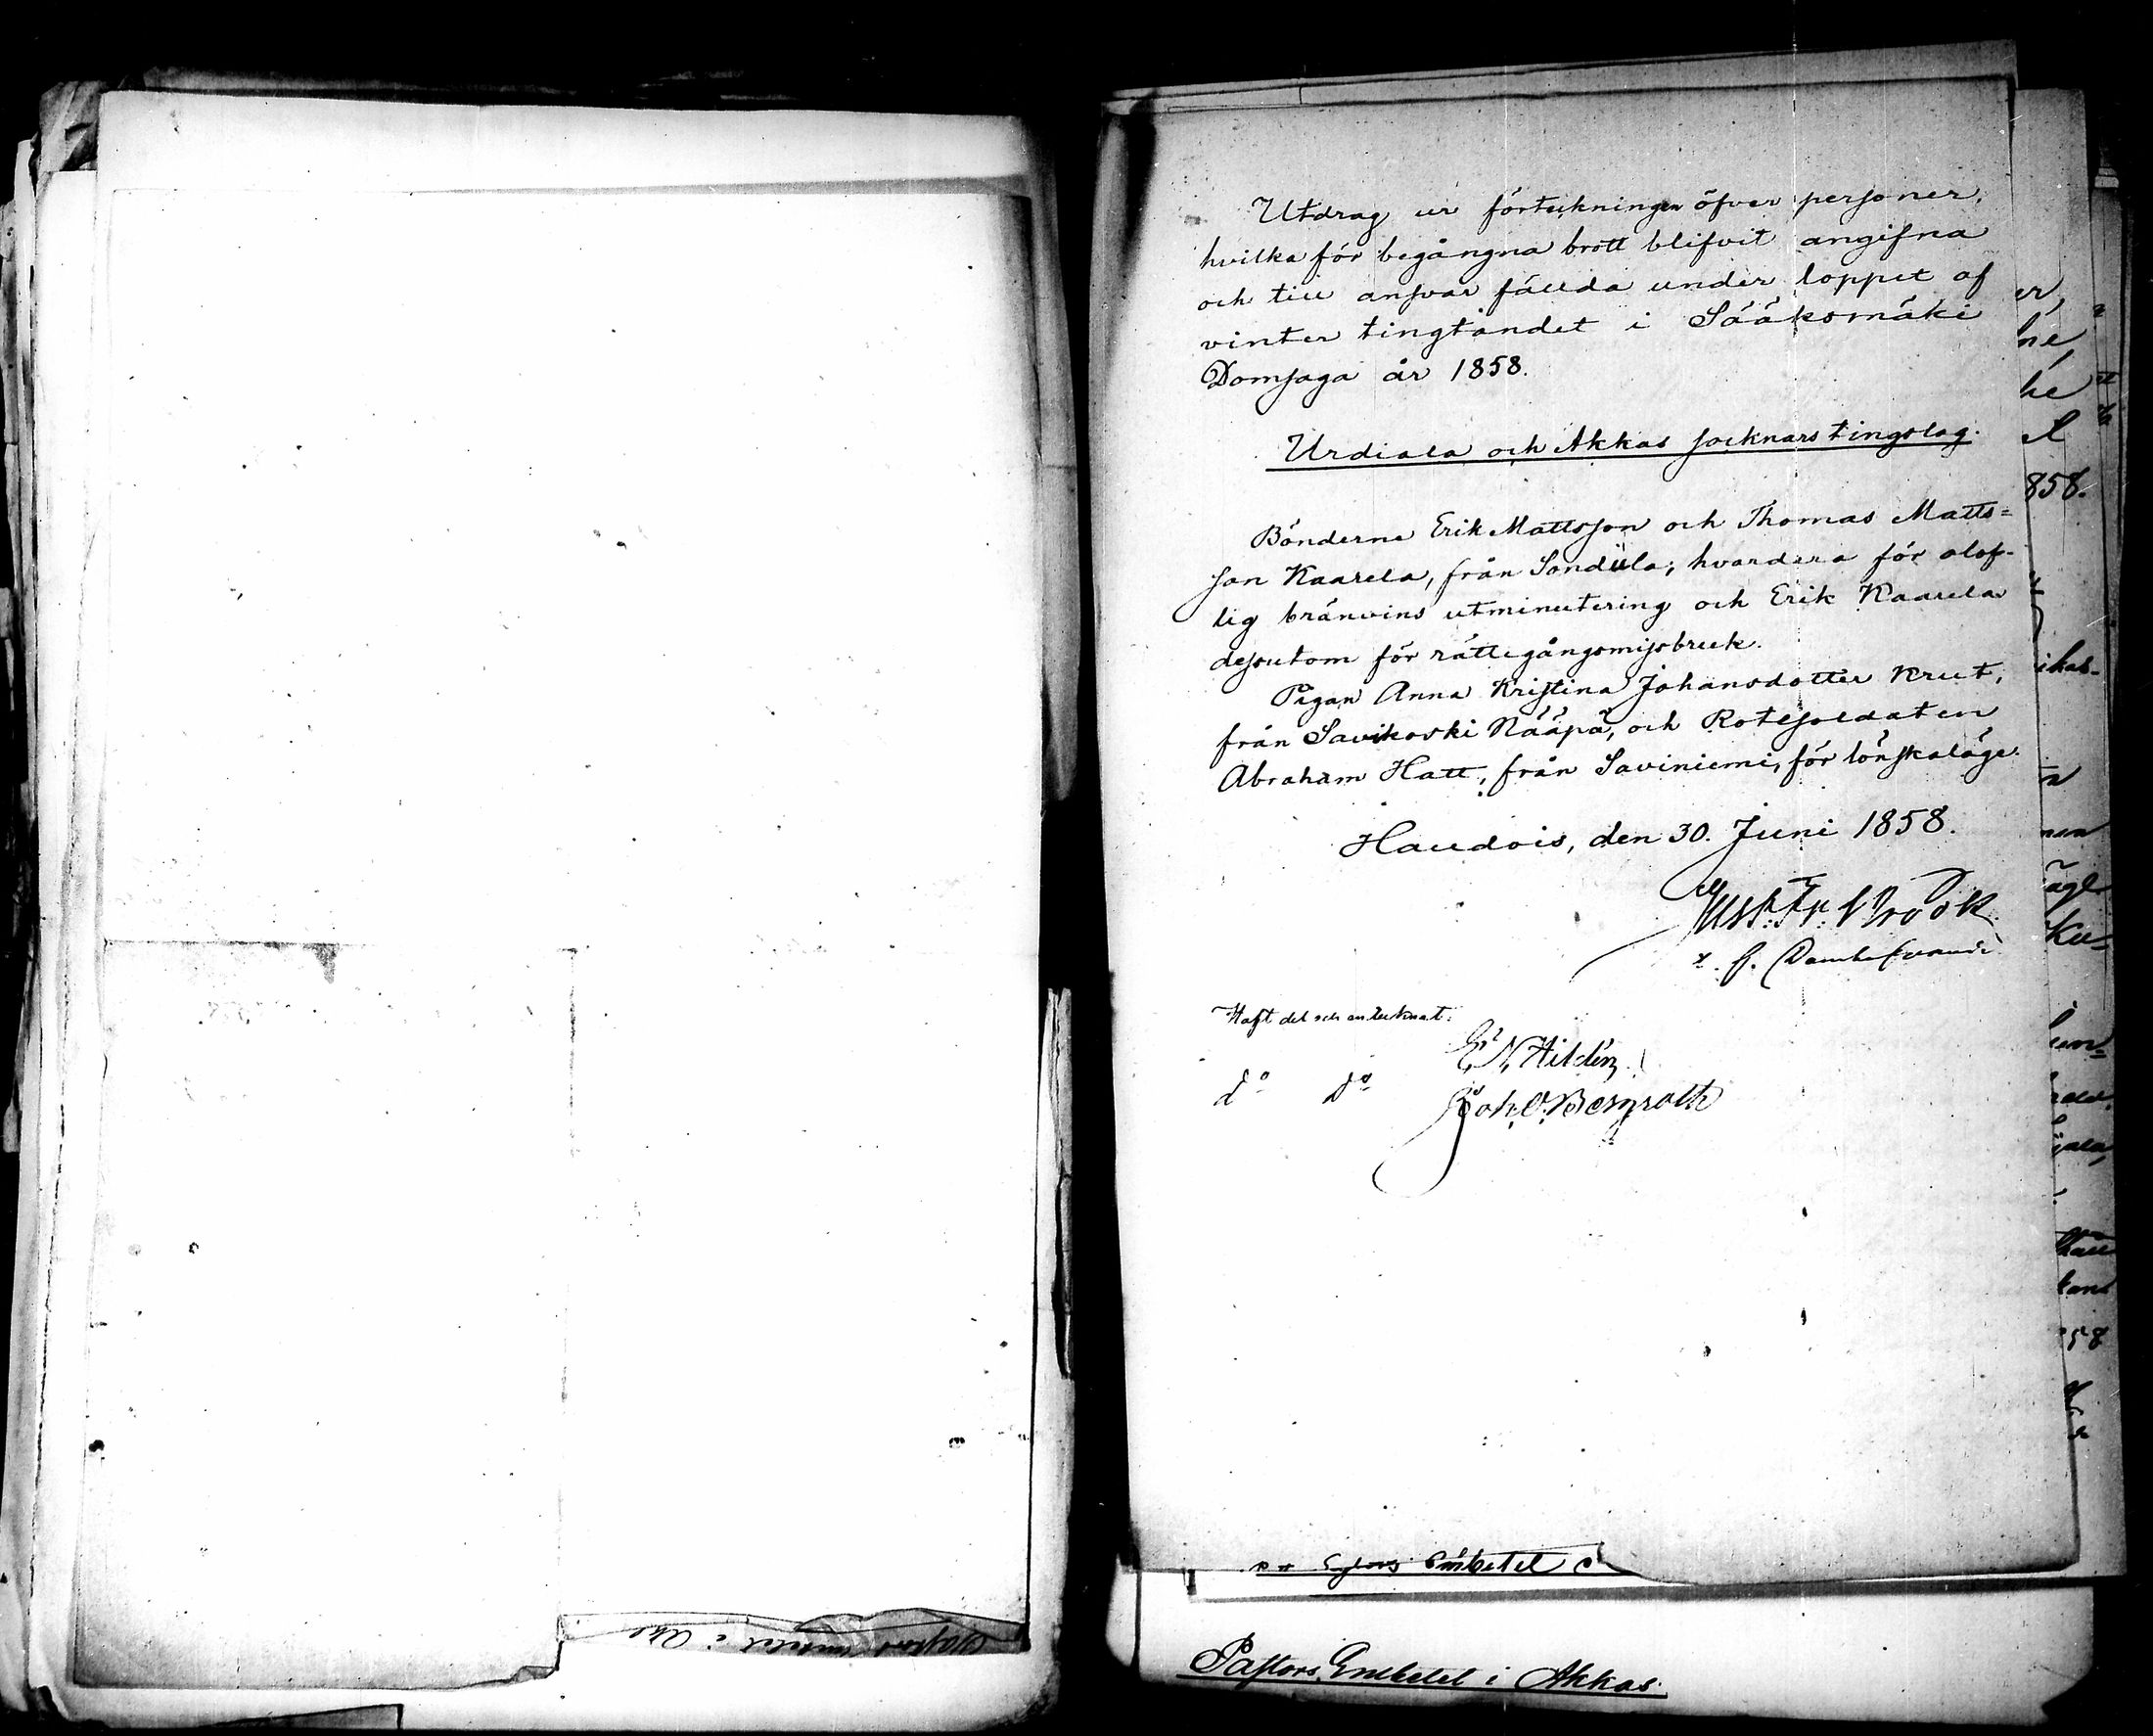 Utdrag ur förteckningen öfver personer,
hvilka för begångna brott blifvit angifna
och till ansvar fällda under loppet af
vinter tingtandet i Sääksmäki
Domsaga år 1858.
Urdiala och Akkas socknars tingslag.
Bönderne Erik Mattsson och Thomas Matts=
son Kaarela, från Sondiila, hvardera för olof-
lig bränvins utminutering och Erik Kaarela
dessutom för rättegångsmissbruk.
Pigan Anna Kristina Johansdotter Krut,
från Savikoski Nääpä, och Rotesoldaten
Abraham Hatt, från Saviniemi, för lönskaläge.
Haudois, den 30. Juni 1858.
Gust. Fr. Brook
Haft del och antecknat.
E. N. Hildén
do do Joh. O. Bergroth
Embetet
Pastors Embetet i Akkas.
er,
he
858.
ikas-
ägl
58